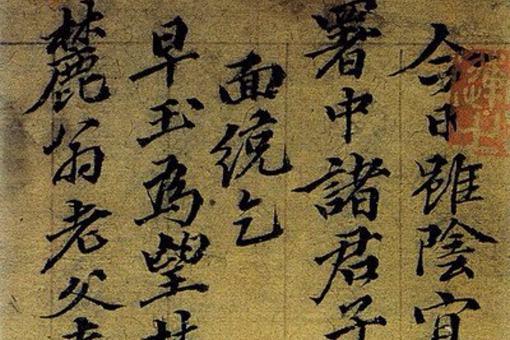 今日雖陰宜
署中諸君子
面統乞
早玉為望
麓翁老父